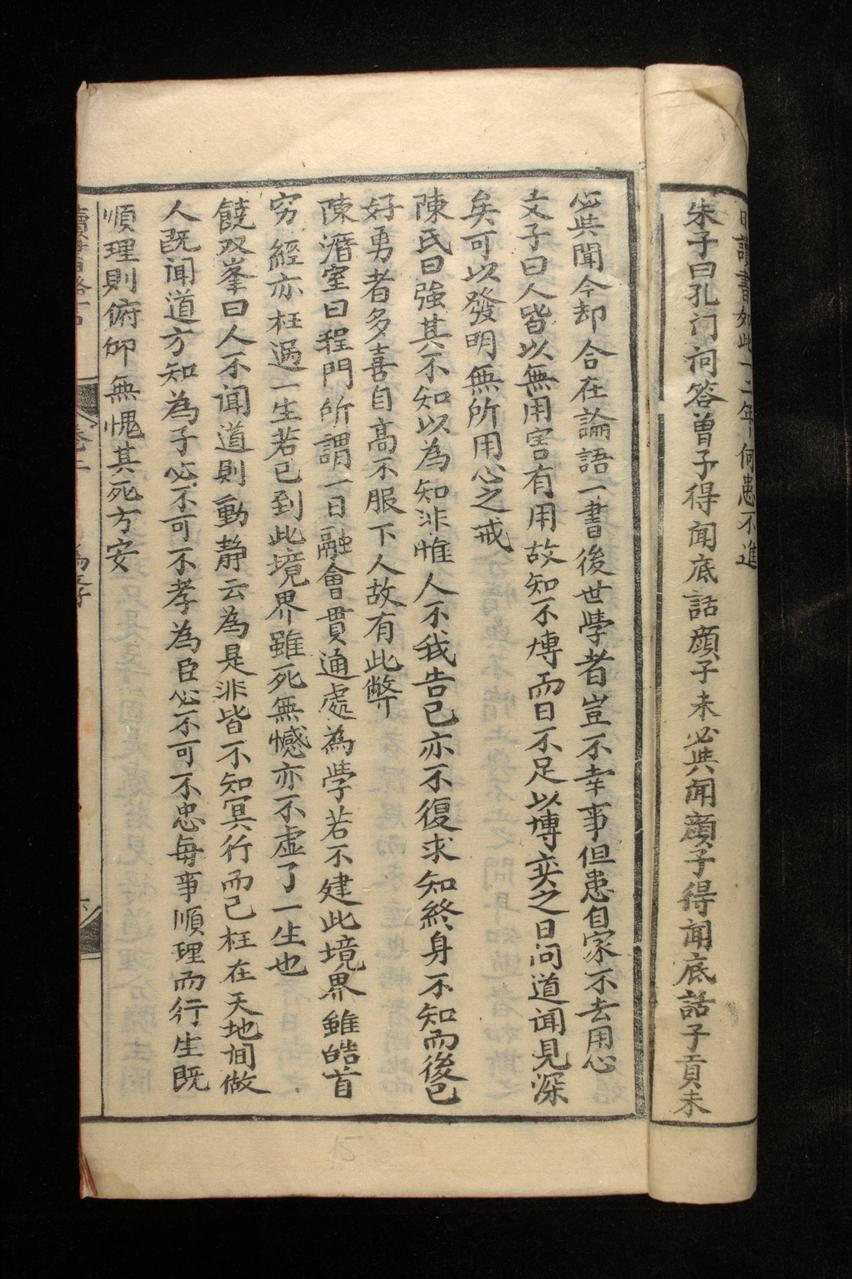 日讀書如此一二年何患不進
朱子曰孔门问答曽子得闻底話顔子未必共闻顔子得闻底話子貢未
必共聞今却合在論語一書後世学者豈不幸事但患自家不去用心
文子曰人皆以無用害有用故知不愽而日不足以博奕之日问道闻見深
矣可以發明無所用心之戒
陳氏曰強其不知以為知非惟人不我告己亦不復求知終身不知而後已
好勇者多喜自高不服下人故有此弊
陳潛室曰程門所謂一日融會貫通處為学若不建此境界雖皓首
穷經亦枉過一生若已到此境界雖死無憾亦不虚了一生也
饒双峯曰人不闻道則動静云為是非皆不知冥行而己枉在天地间做
人既闻道方知為子必不可不孝為臣必不可不忠每事順理而行生既
順理則俯仰無愧其死方安
卷二